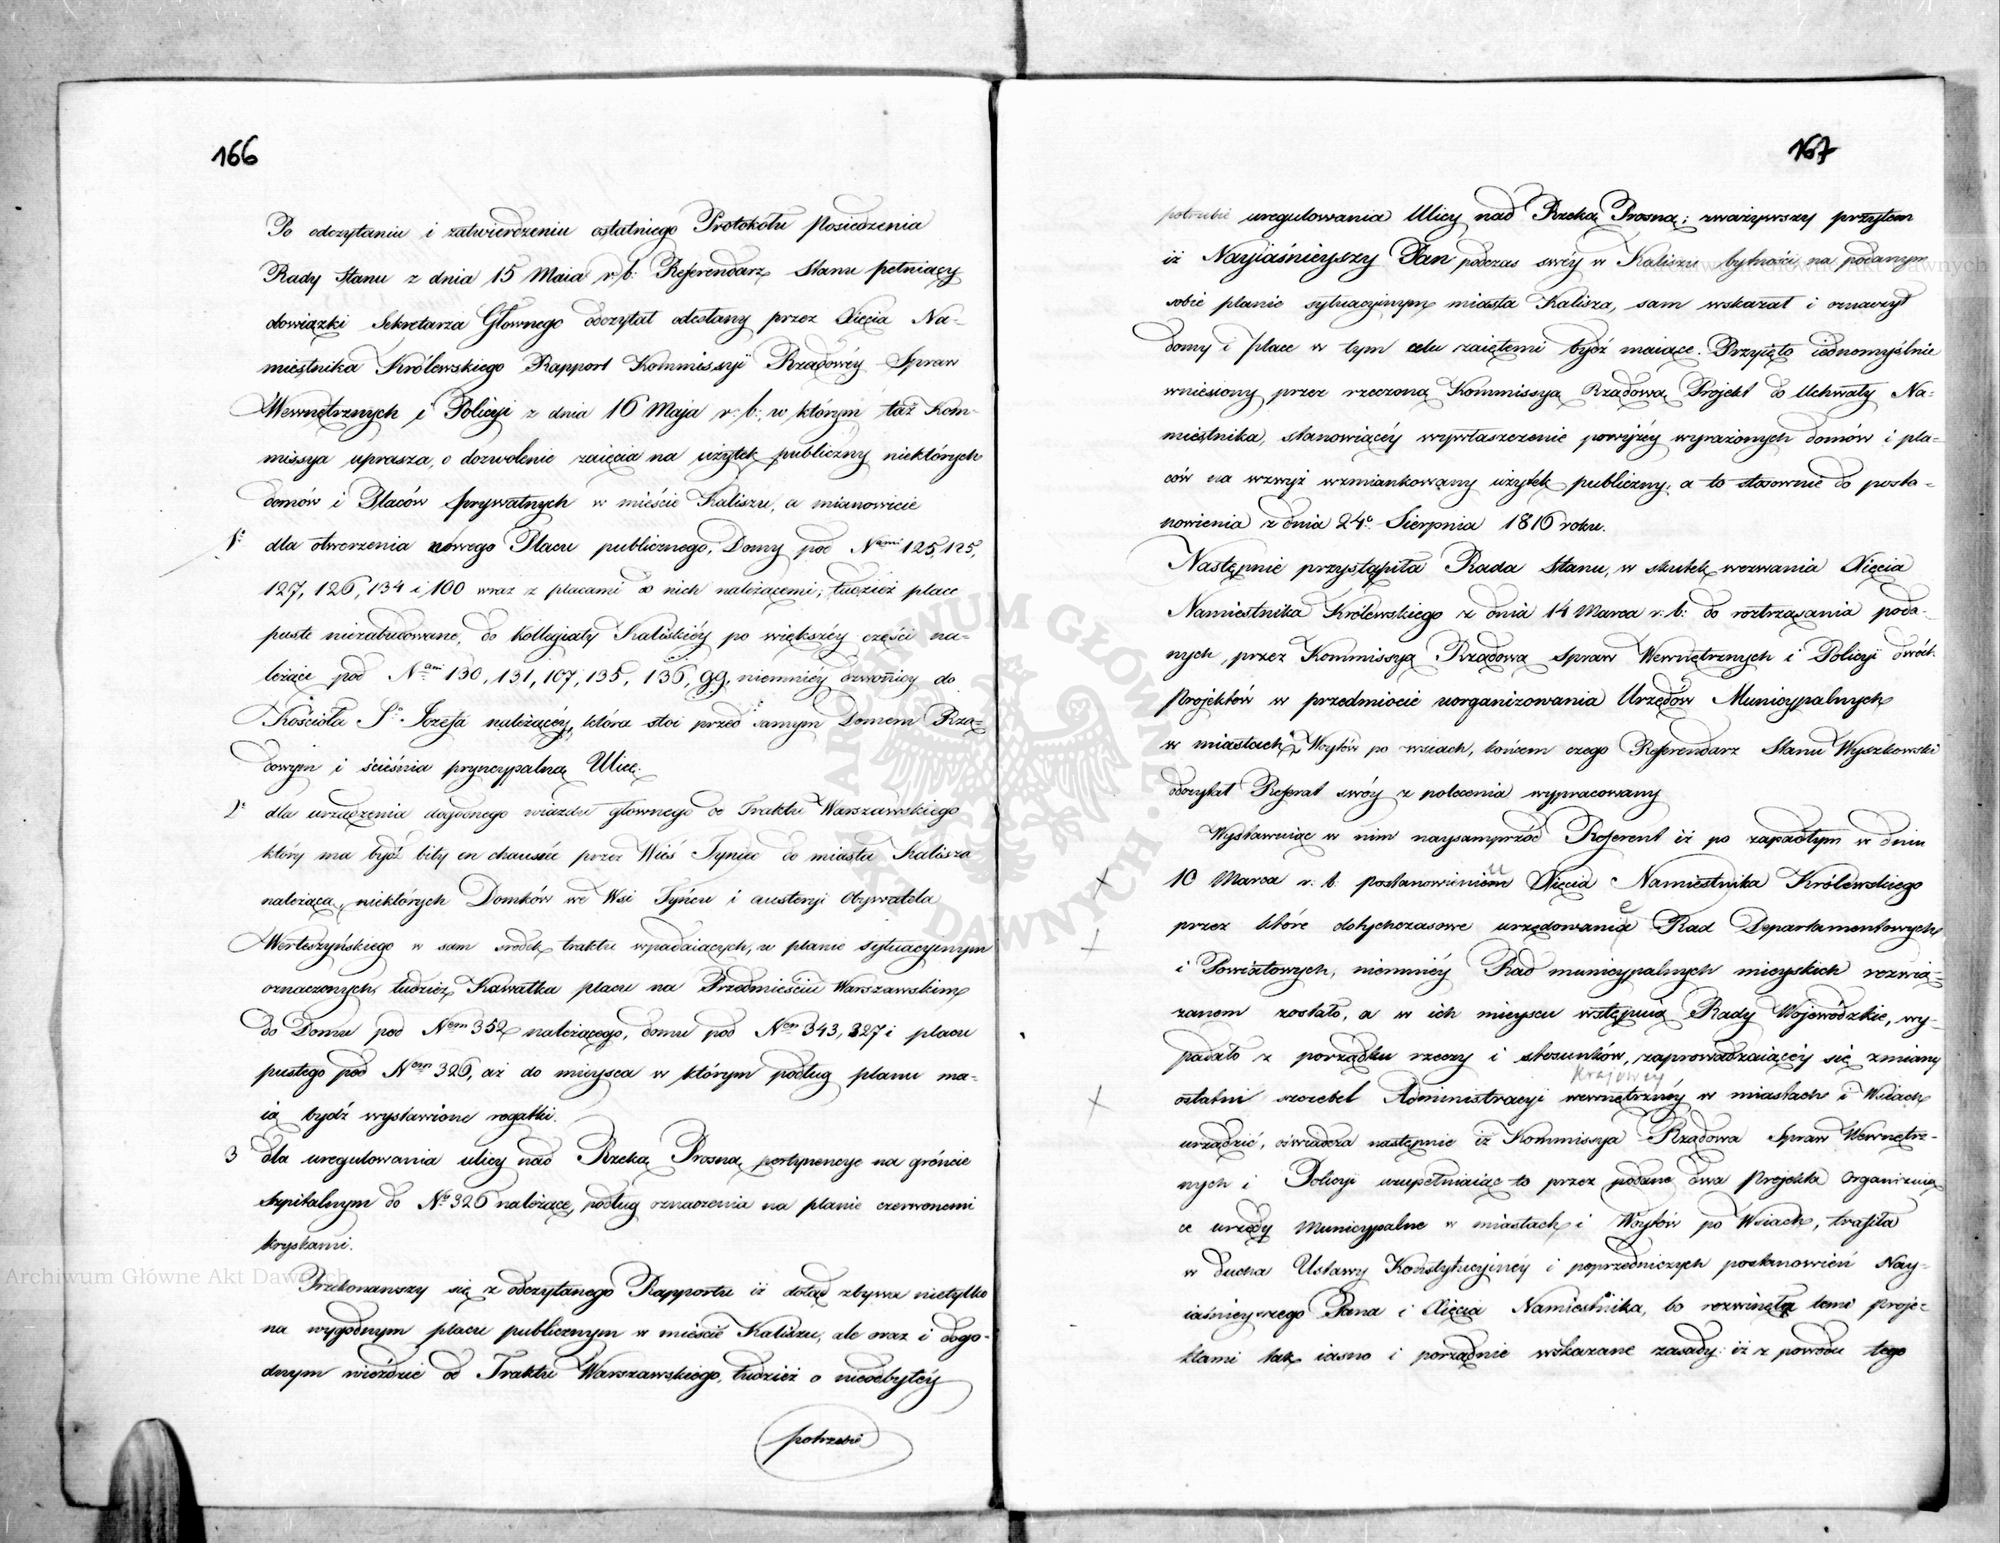 166
Po odczytaniu i zatwierdzeniu ostatniego Protokołu Posiedzenia
Rady Stanu z dnia 15 Maia r: b: Referendarz Stanu pełniący
obowiązki Sekretarza Głownego odczytał odesłany przez Xięcia Na-
miestnika Królewskiego Rapport Kommissyi Rządowéy Spraw
Wewnętrznych i Policyi z dnia 16 Maja r: b: w którym taż Kom-
missya uprasza, o dozwolenie zaięcia na użytek publiczny niektórych
domów i Placów prywatnych w mieście Kaliszu, a mianowicie
1o dla otworzenia nowego Placu publicznego, Domy pod Nami 125, 125,
127, 126, 134 i 100 wraz z placami do nich należącemi; tudzież place
puste niezabudowane, do Kollegiaty Kaliskiéy po większéy części na-
leżące pod Nami 130, 131, 107, 135, 136, 99, niemniéy dzwonicy do
Kościoła So Józefa należącéy, która stoi przed samym Domem Rzą-
dowym i ścieśnia pryncypalną Ulicę.
2o dla urządzenia dogodnego wiazdu głownego od Traktu Warszawskiego
który ma bydź bity en chaussée przez Wieś Tyniec do miasta Kalisza
należąca, niektórych Domków we Wsi Tyńcu i austeryi Obywatela
Werteszyńskiego w sam środek traktu wpadaiących, w planie sytuacyinym
oznaczonych, tudzież Kawałka placu na Przedmieściu Warszawskim
do Domu pod Nem 352 należącego, domu pod Nem 343, 327 i placu
pustego pod Nem 326, aż do mieysca w którym podług planu ma-
ią bydź wystawione rogatki.
3 dla uregulowania ulicy nad Rzeką Prosną pertynencye na gróncie
szpitalnym do No 326 należące, podług oznaczenia na planie czerwonemi
kryskami.
Przekonawszy się z odczytanego Rapportu iż dotąd zbywa nietylko
na wygodnym placu publicznym w mieście Kaliszu, ale oraz i dogo-
dnym wieździe od Traktu Warszawskiego, tudzież o nieodbytéy
potrzebie
167
potrzebie uregulowania Ulicy nad Rzeką Prosną; zważywszy przytem
iż Nayiaśnieyszy Pan podczas swéy w Kaliszu bytności na podanym
sobie planie sytuacyinym miasta Kalisza, sam wskazał i oznaczył
domy i place w tym celu zaiętemi bydź maiące. Przyięto iednomyślnie
wniesiony przez rzeczoną Kommissyą Rządową Projekt do Uchwały Na-
miestnika, stanowiącéy wywłaszczenie powyżéy wyrażonych domów i pla-
ców na wzwyż wzmiankowany użytek publiczny, a to stosownie do posta-
nowienia z dnia 24o Sierpnia 1816 roku.
Następnie przystąpiła Rada Stanu, w skutek wezwania Xięcia
Namiestnika Królewskiego z dnia 14 Marca r: b: do roztrząsania poda-
nych, przez Kommissyą Rządową Spraw Wewnętrznych i Policyi dwóch
Projektów w przedmiocie uorganizowania Urzędów Municypalnych
w miastach i Woytów po wsiach, końcem czego Referendarz Stanu Wyszkowski
odczytał Referat swóy z polecenia wypracowany
Wystawuiąc w nim naysamprzód Referent iż po zapadłym w dniu
10 Marca r: b: postanowieniem Xięcia Namiestnika Królewskiego
przez które dotychczasowe urzędowanie Rad Departamentowych
i Powiatowych, niemniéy Rad municypalnych mieyskich rozwią-
zanem zostało, a w ich mieyscu wstępuią Rady Wojewódzkie, wy-
padało z porządku rzeczy i stosunków, zaprowadzaiącéy się zmiany
krajowey
ostatni szczebel Administracyi wewnętrznéy w miastach i Wsiach
urządzić, oświadcza następnie iż Kommissya Rządowa Spraw Wewnętrz-
nych i Policyi uzupełniaiąc to przez podane dwa Projekta organizuią-
ce urzędy Municypalne w miastach i Woytów po Wsiach, trafiła
w ducha Ustawy Konstytucyinéy i poprzedniczych postanowień Nay-
iaśnieyszego Pana i Xięcia Namiestnika, bo rozwinęła temi proje-
ktami tak iasno i porządnie wskazane zasady: iż z powodu tego
ARCHIWUM GŁÓWNE AKT DAWNYCH
Archiwum Główne Akt Dawnych
Archiwum Główne Akt Dawnych